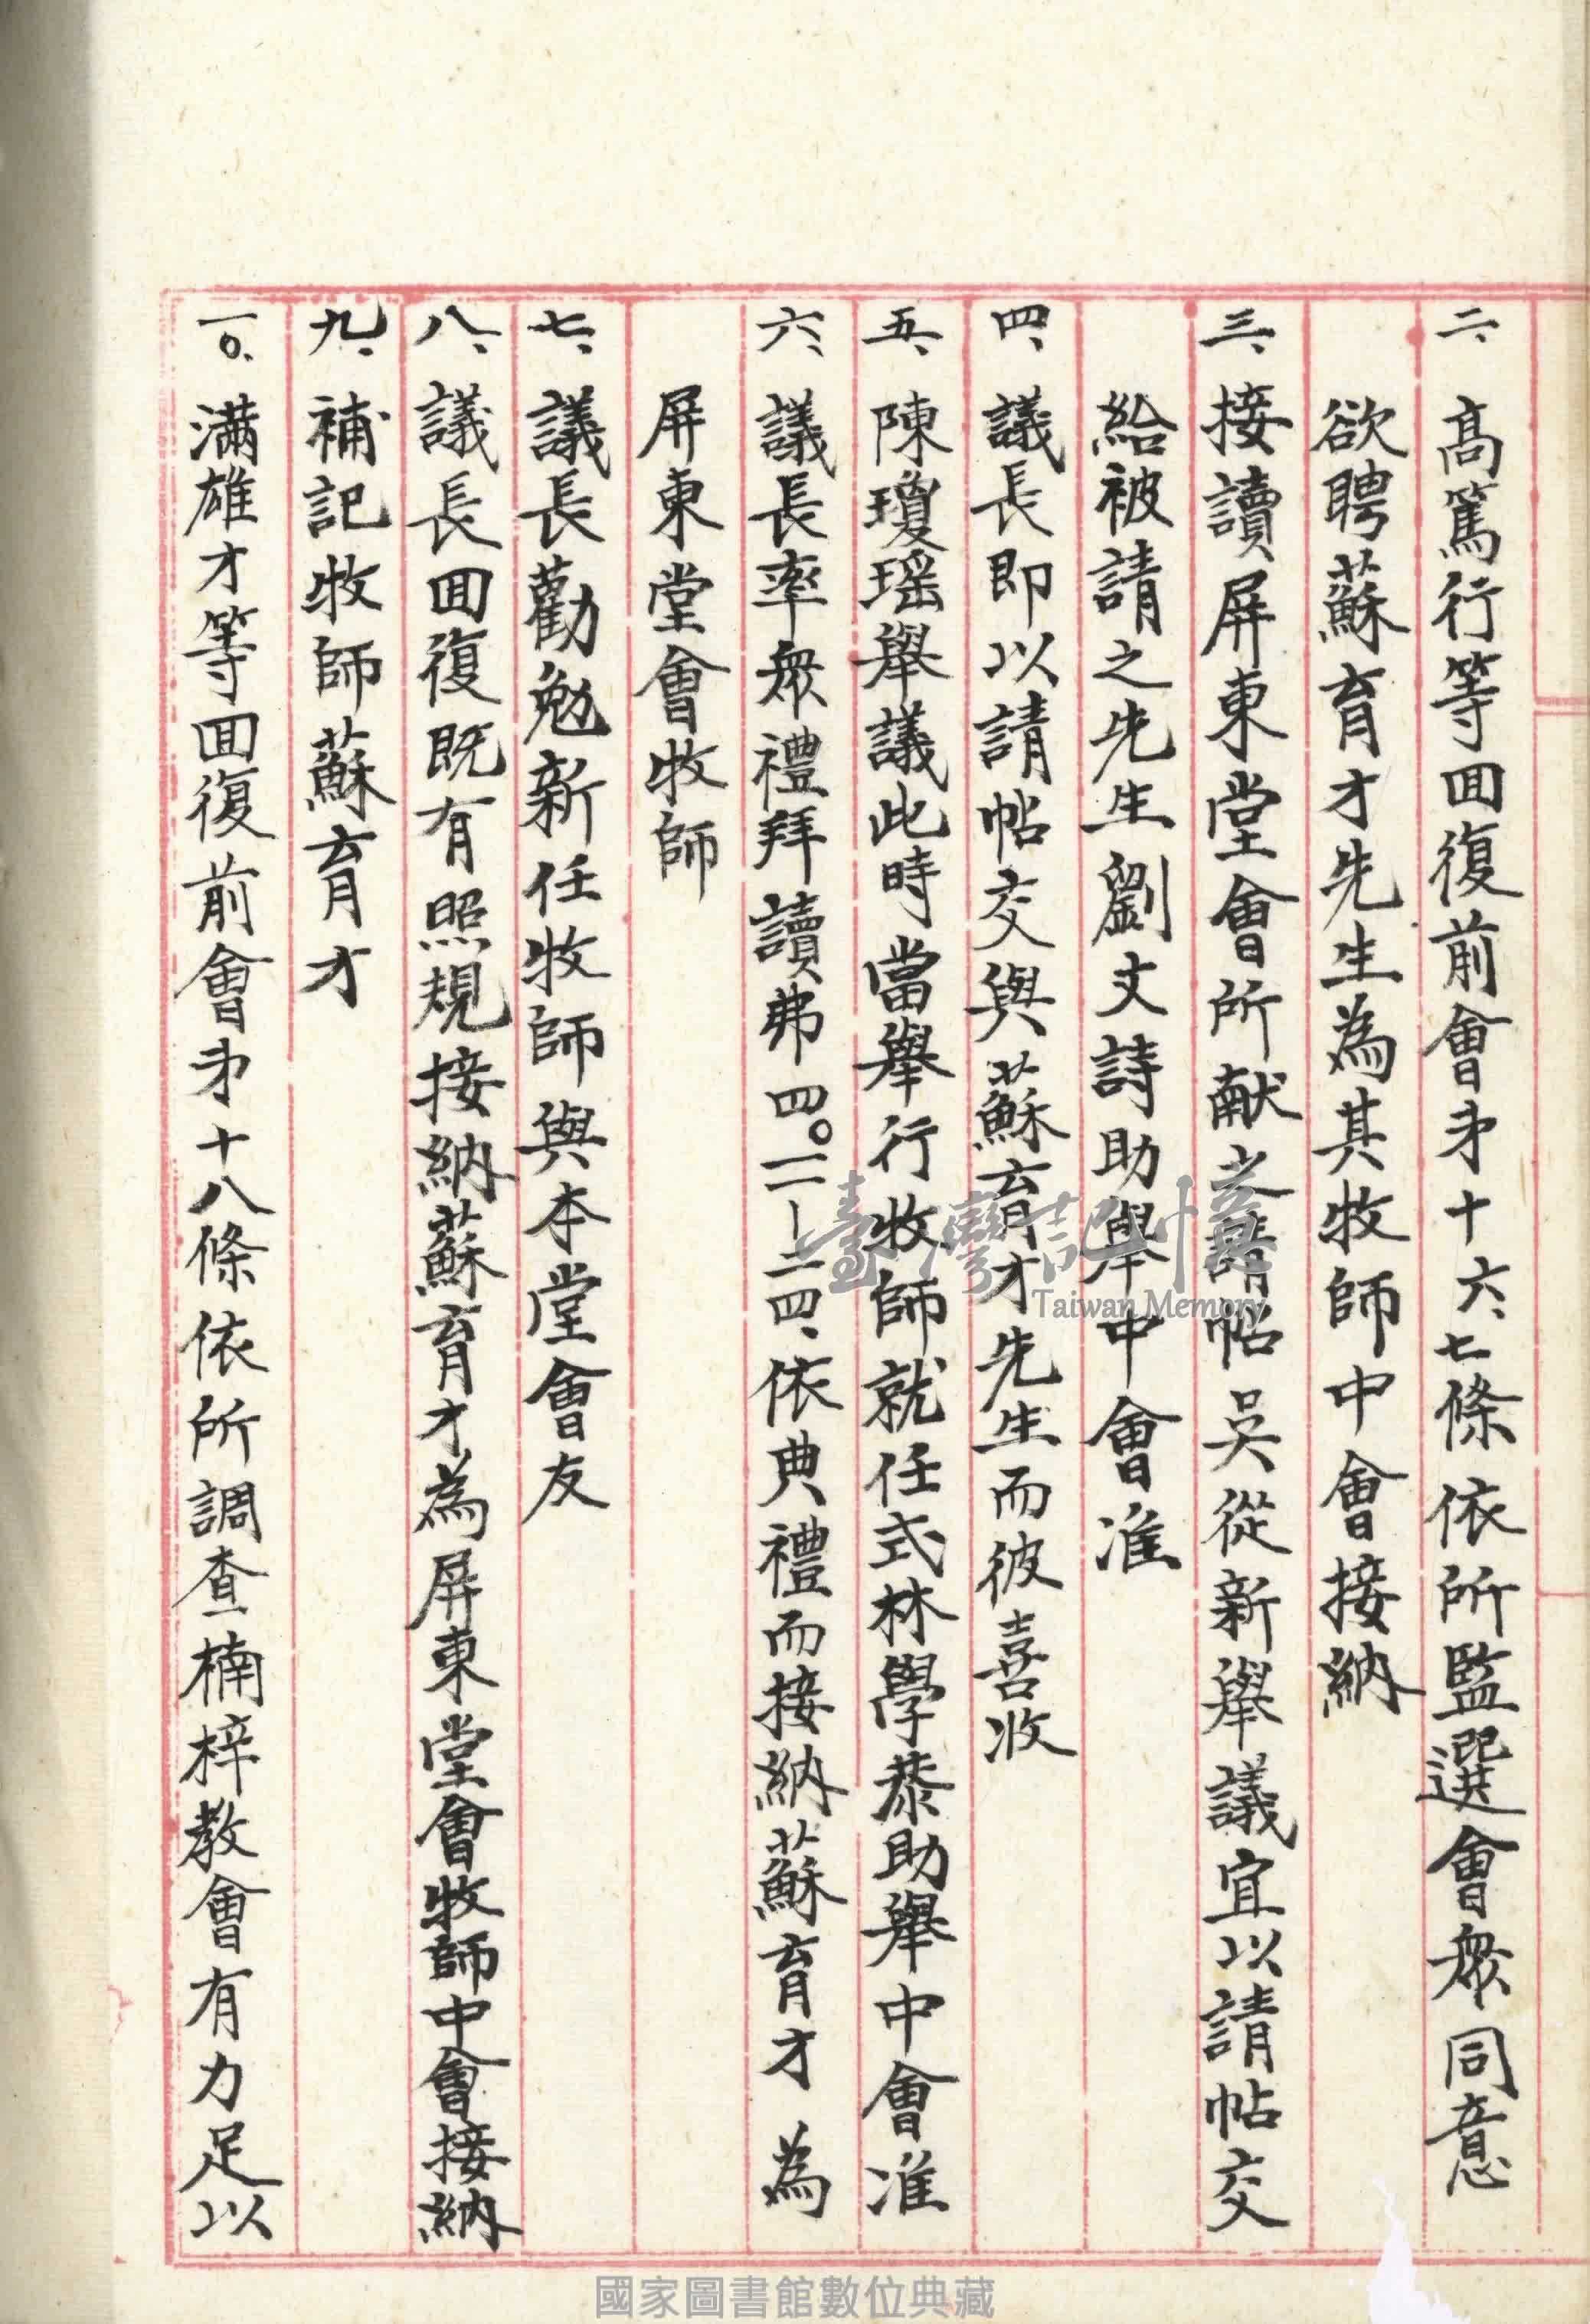 二、高篤行等囬復前會㐧十六、七條依所監選會衆同意
欲聘蘇育才先生為其牧師中會接納
三、接讀屏東堂會所献之請帖吳從新舉議宜以請帖交
給被請之先生劉文詩助舉中會准
四、議長即以請帖交與蘇育才先生而彼喜收
五、陳瓊瑶舉議此時當舉行牧師就任式林學恭助舉中會准
六、議長率衆禮拜讀弗四。一二—二四、依典禮而接納蘇育才為
屏東堂會牧師
七、議長勸勉新任牧師與本堂會友
八、議長囬復既有照規接納蘇育才為屏東堂會牧師中會接納
九、補記牧師蘇育才
一〇、満雄才等囬復前會㐧十八條依所調查楠梓教會有力足以
臺灣記憶
Taiwan Memory
國家圖書館數位典藏